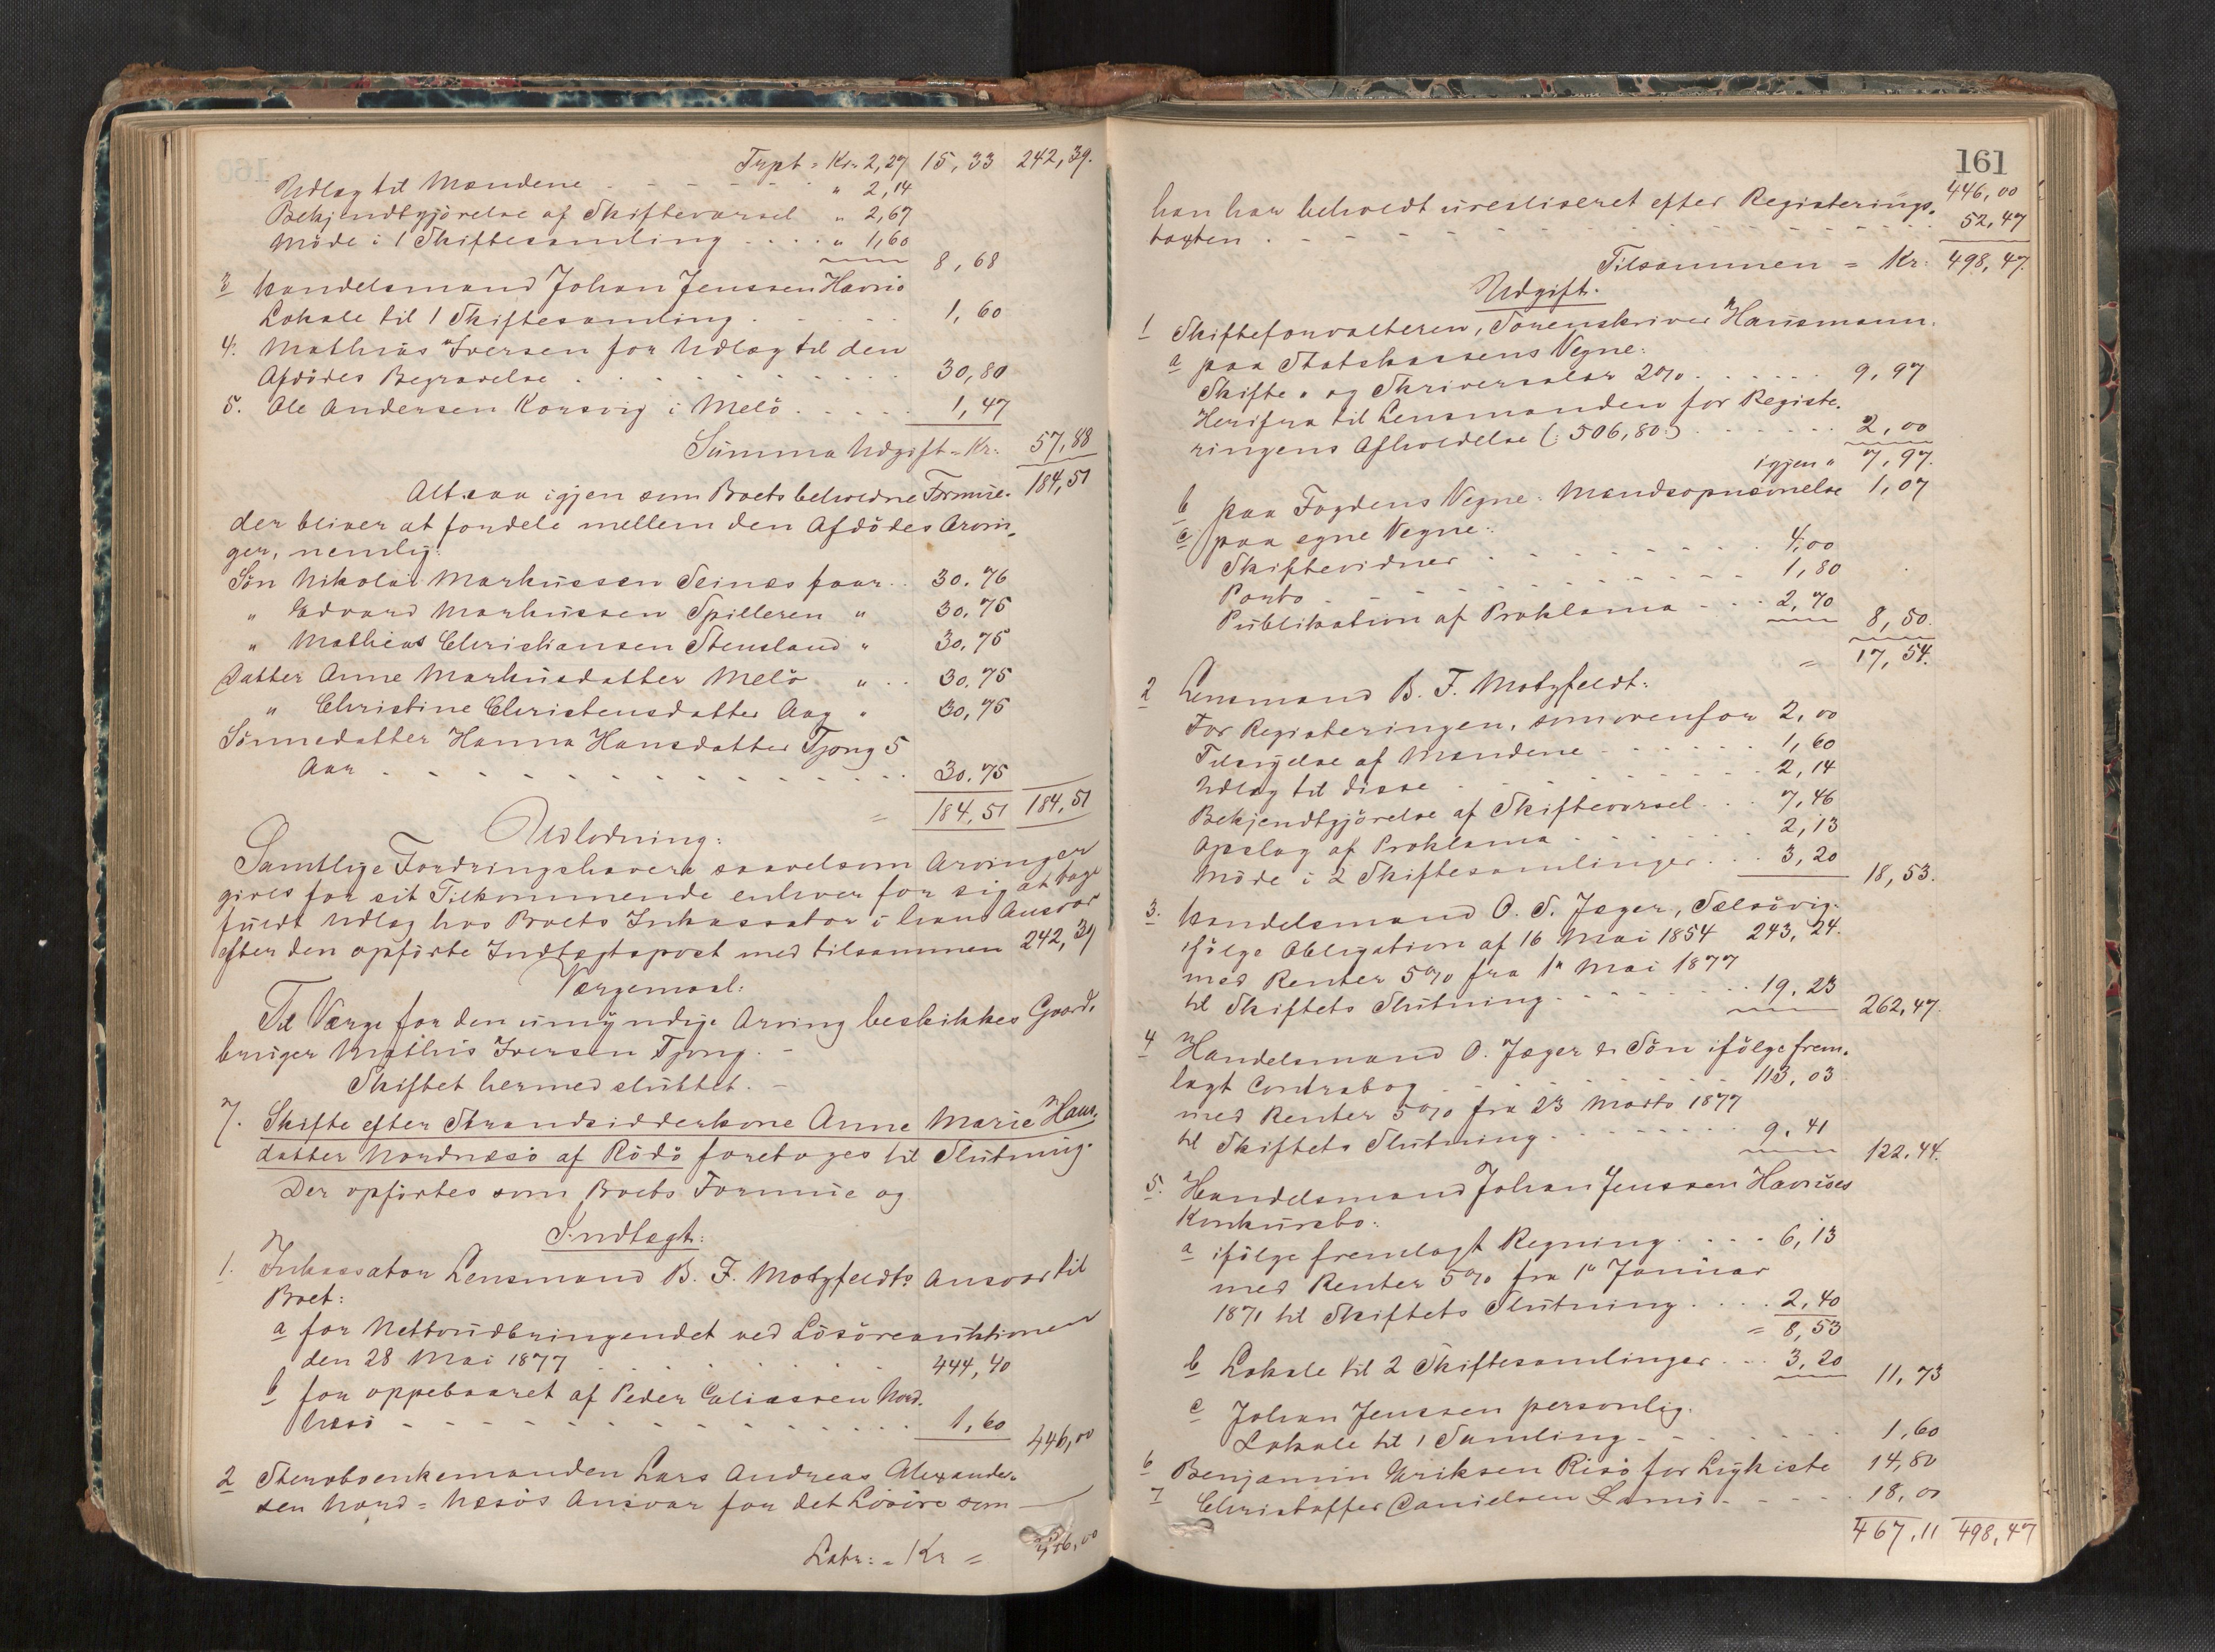 Trpt = Kr. 2,27 15,33 242,39.
Udlæg til Mændene " 2,14
Bekjendtgjörelse af Skiftevarsel " 2,67
Möde i 1 Skiftesamling " 1,60 8,68
3 Handelsmand Johan Jenssen Havnö
Lokale til 1 Skiftesamling 1,60
4. Mathias Iversen for Udlæg til den
Afdödes Begravelse 30,80
5. Ole Andersen Korsvig i Melö 1,47
Summa Udgift = Kr. 57,88
Altsaa igjen som Boets beholdne Formue 184,51
der bliver at fordele mellem den Afdödes Arvin-
ger, nemlig:
Sön Nikolai Markussen Seines faar 30.76
" Edvard Markussen Spilleren " 30,75
" Mathias Christiansen Stensland " 30,75
Datter Anne Markusdatter Melö " 30.75
" Christine Christensdatter Aag " 30,75
Sönnedatter Hanna Hansdatter Tjong 5
Aar 30.75
= 184,51 184,51
Udlodning:
Samtlige Fordringshavere saavelsom Arvinger
gives for sit Tilkommende enhver for sig at tage
fuldt Udlæg hos Boets Inkassator i hans Ansvar
efter den opförte Indtægtspost med tilsammen 242,39
Værgemaal:
Til Værge for den umyndige Arving beskikkes Gaard-
bruger Mathis Iversen Tjong. –
Skiftet hermed sluttet. –
7. Skifte efter Strandsidderkone Anne Marie Hans-
datter Nordnæsö af Rödö foretoges til Slutning.
Der opförtes som Boets Formue og
Indtægt:
1. Inkassator Lensmand B. F. Motzfeldts Ansvar til
Boet:
a for Nettoudbringendet ved Lösöreauktionen
den 28 Mai 1877 444,40
b for oppebaaret af Peder Eliassen Nord-
næsö 1,60 446,00
2 Sterboenkemanden Lars Andreas Alexander-
sen Nord=Næsös Ansvar for det Lösöre som
Latr: = Kr = 446,00
161
446,00
han har beholdt urealiseret efter Registerings-
taxten 52,47
Tilsammen = Kr. 498,47.
Udgift.
1 Skifteforvalteren, Sorenskriver Hausmann.
a paa Statskassens Vegne:
Skifte- og Skriversalær 2% 9,97
Herifra til Lensmanden for Registe-
ringens Afholdelse (: 506,80 :) 2,00
igjen " 7,97.
b paa Fogdens Vegne: Mandsopnævnelse 1,07
c paa egne Vegne:
Skiftevidner 4,00
Porto 1,80
Publikation af Proklama 2,70 8,50.
= 17,54.
2 Lensmand B. F. Motzfeldt:
For Registeringen, som ovenfor 2,00
Tilsigelse af Mændene 1,60
Udlæg til disse 2,14
Bekjendtgjörelse af Skiftevarsel 7,46
Opslag af Proklama 2,13
Möde i 2 Skiftesamlinger 3,20 18,53.
3. Handelsmand O. S. Jæger, Selsövig.
ifölge Obligation af 16 Mai 1854 243,24.
med Renter 5% fra 1" Mai 1877
til Skiftets Slutning 19.23 262,47.
4 Handelsmand O. Jæger & Sön ifölge frem-
lagt Contrabog 113,03
med Renter 5% fra 23 Marts 1877
til Skiftets Slutning 9.41 122.44.
5. Handelsmand Johan Jenssen Havnöes
Konkursbo:
a ifölge fremlagt Regning 6,13
med Renter 5% fra 1" Januar
1871 til Skiftets Slutning 2,40
= 8,53
b Lokale til 2 Skiftesamlinger 3,20 11,73
c Johan Jenssen personlig.
Lokale til 1 Samling 1,60
6 Benjamin Eriksen Risö for Ligkiste 14,80
7 Christoffer Danielsen 18,00
467,11 498,47